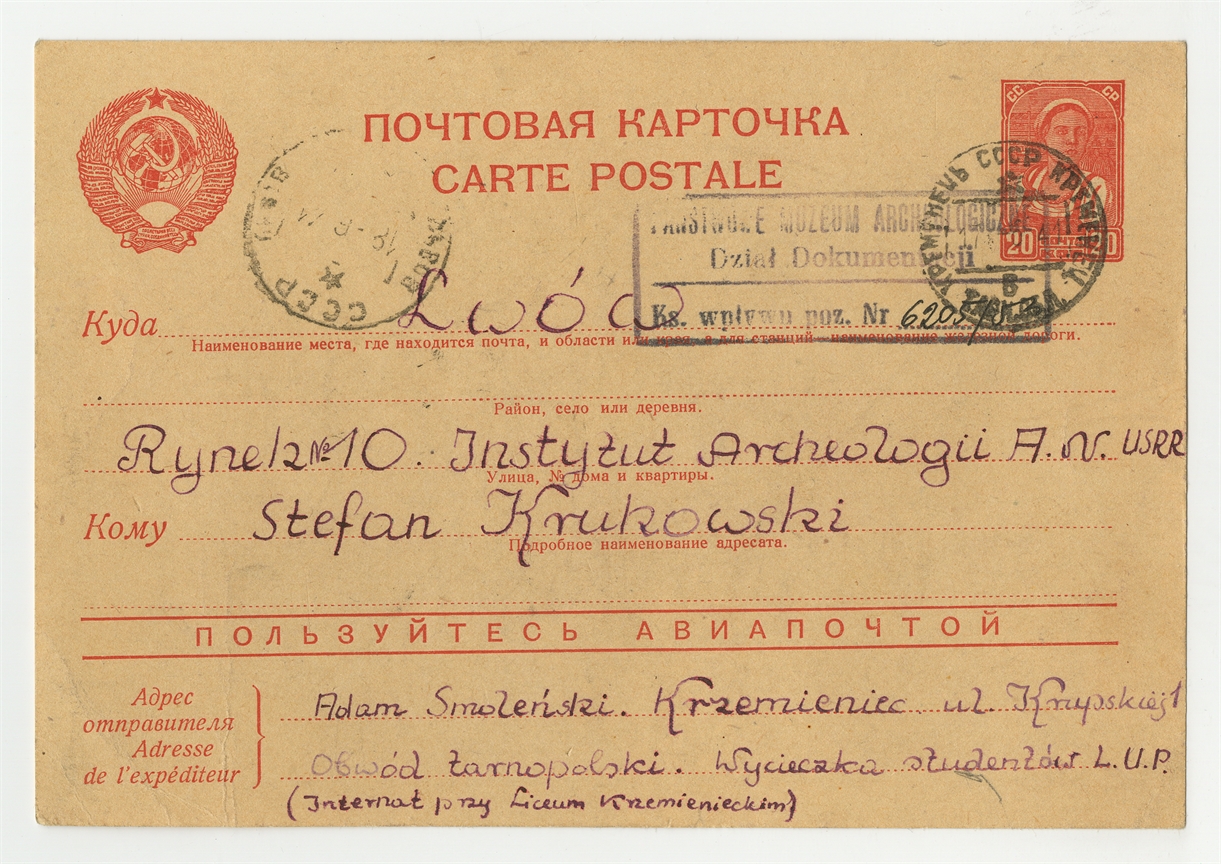 ПОЧТОВАЯ КАРТОЧКА
CARTE POSTALE
СС СР
20 ПОЧТА
КРЕМЕНЕЦЬ СССР КРЕМЕНЕЦ
СССР
PAŃSTWOWE MUZEUM ARCHEOLOGICZNE
Dział Dokumentacji
Ks. wpływu poz. Nr 6205
Куда Lwów
Наименование места, где находится почта, и области или края, а для станций наименование железной дороги.
Район, село или деревня.
Rynek № 10. Instytut Archeologii A. N. USRR
Улица, № дома и квартиры.
Кому Stefan Krukowski
Подробное наименование адресата.
ПОЛЬЗУЙТЕСЬ АВИАПОЧТОЙ
Адрес отправителя
Adresse de l'expéditeur
Adam Smoleński. Krzemieniec ul. Krupskiej 1
Obwód tarnopolski. Wycieczka studentów L.U.P.
(Internat przy Liceum Krzemienieckim)